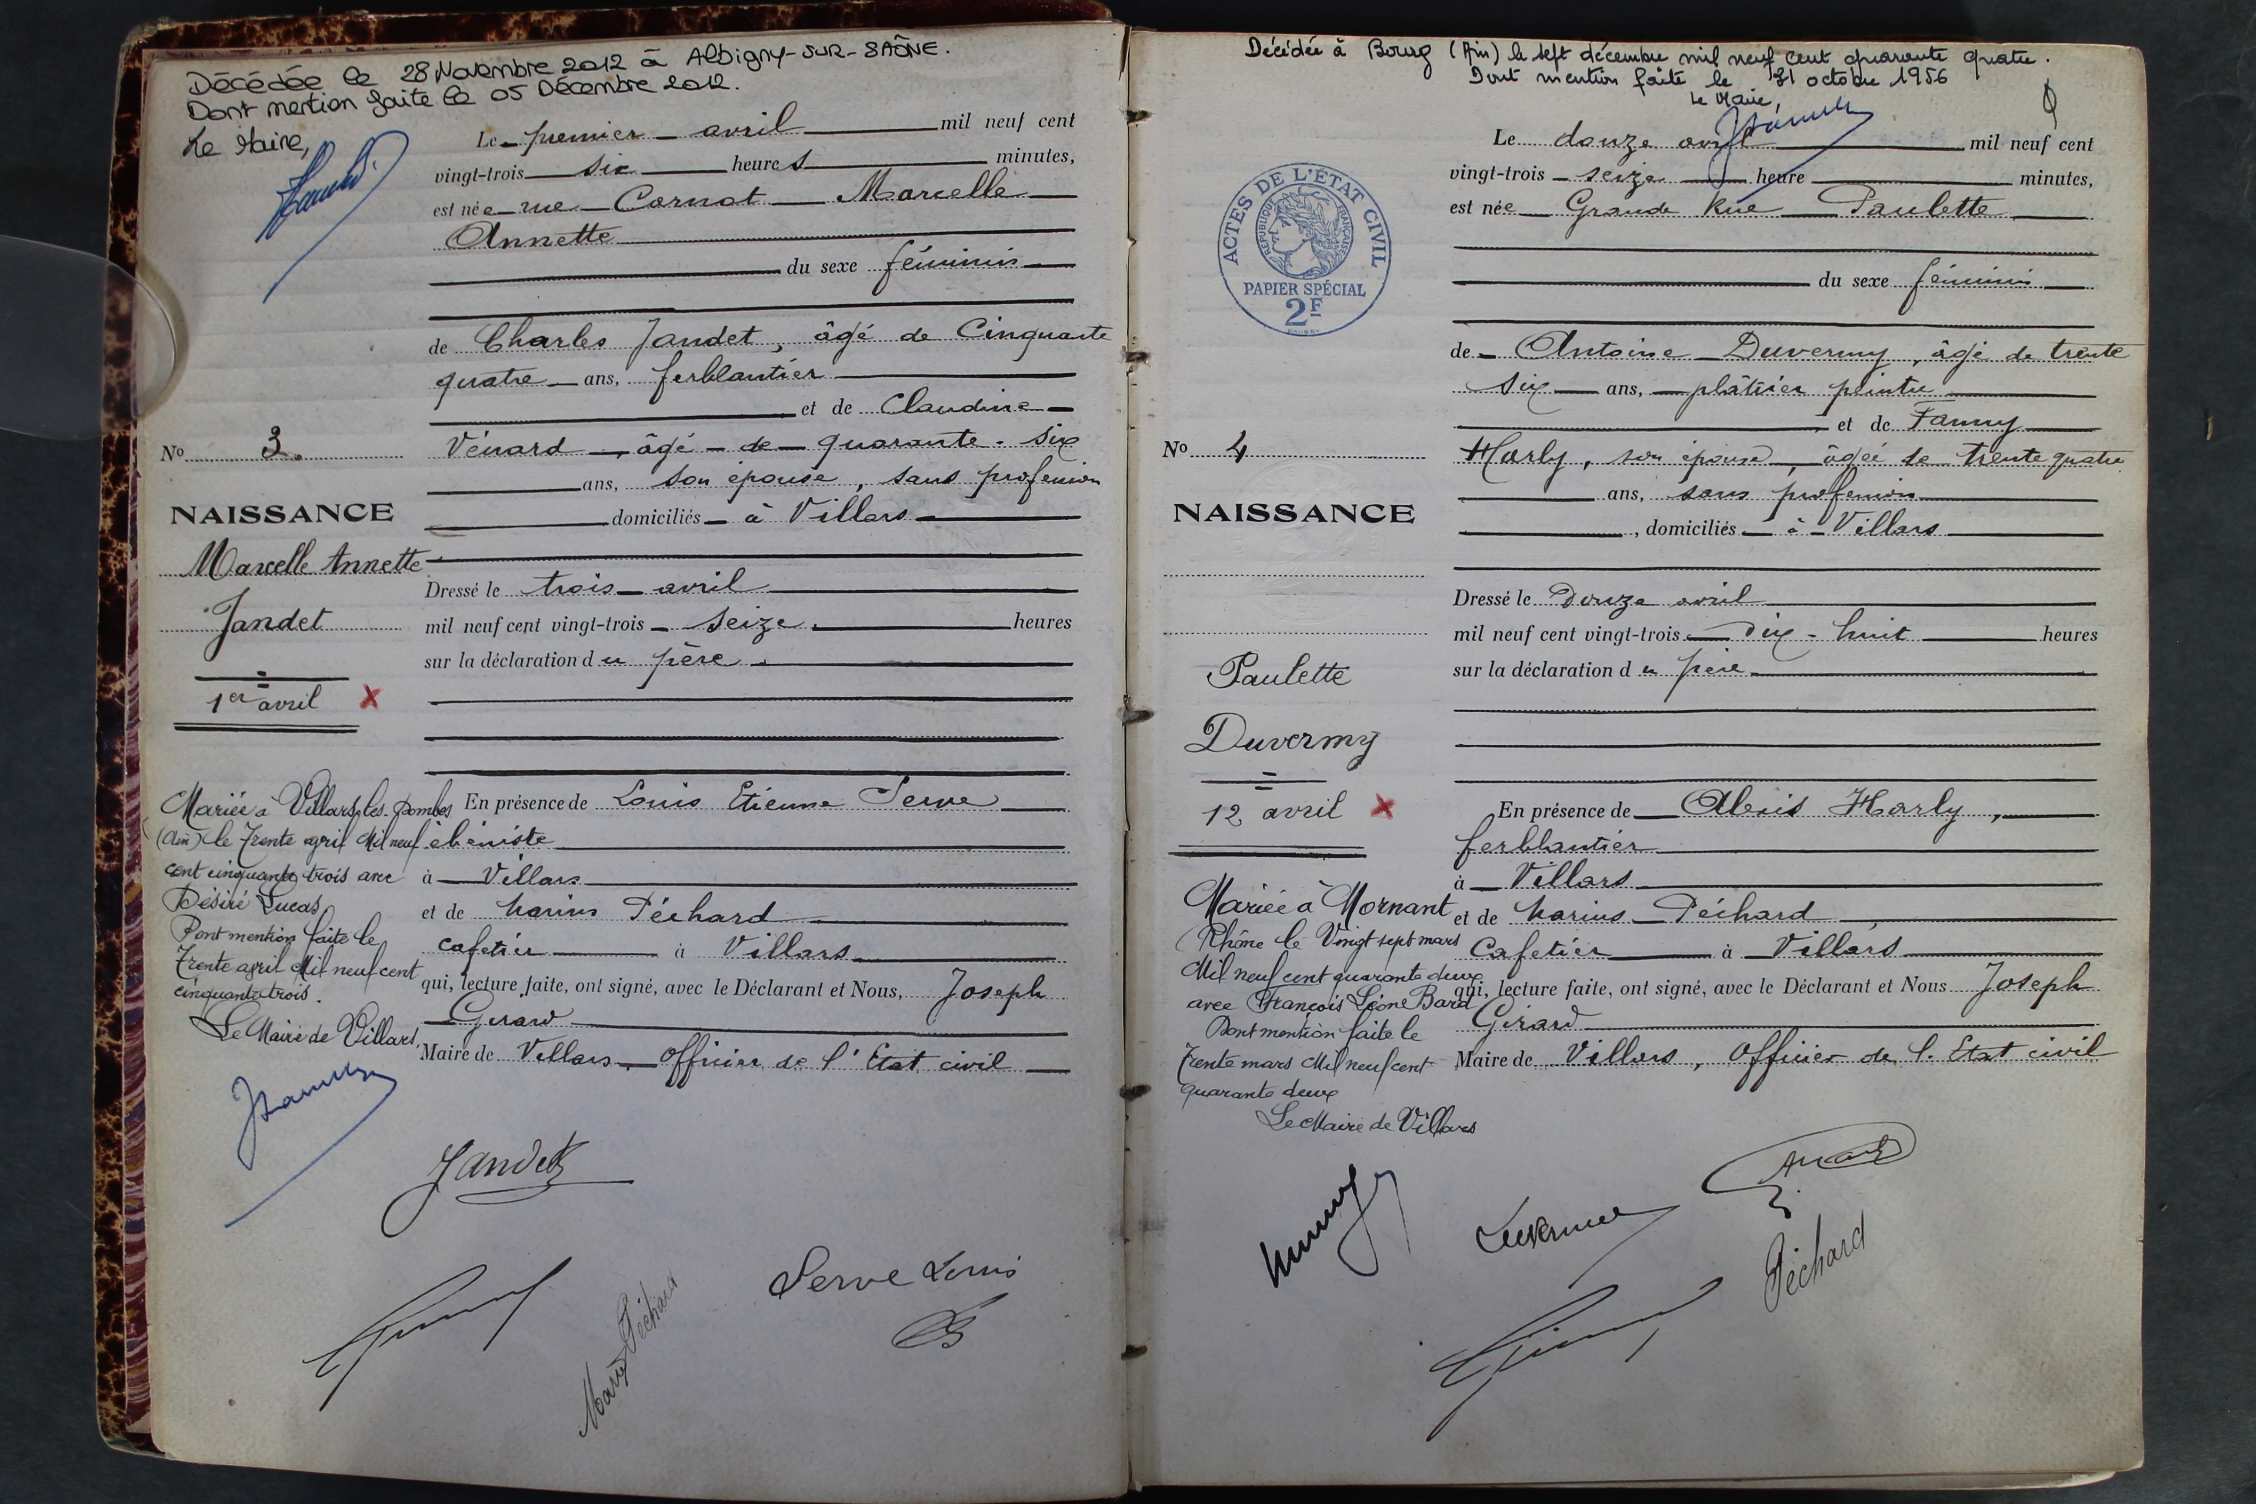 Décédée le 28 Novembre 2012 à Albigny-sur-SAÔNE.
Dont mention faite le 05 Décembre 2012.
Le Maire,
Le premier avril mil neuf cent
vingt-trois six heures minutes,
est née rue Carnot Marcelle
Annette
du sexe féminin
de Charles Jandet, âgé de Cinquante
quatre ans, ferblantier
et de Claudine
Vénard, âgé de quarante-six
ans, son épouse, sans profession
domiciliés à Villars
No 3.
NAISSANCE
Marcelle Annette
Jandet
1er avril
Dressé le trois avril
mil neuf cent vingt-trois seize heures
sur la déclaration du père.
Mariée à Villars-les-Dombes
(Ain) le Trente avril Mil neuf
cent cinquante trois avec
Désiré Lucas
Dont mention faite le
Trente avril Mil neuf cent
cinquante trois.
Le Maire de Villars,
En présence de Louis Etienne Serve
ébéniste
à Villars
et de Marius Péchard
cafetier à Villars
qui, lecture faite, ont signé, avec le Déclarant et Nous, Joseph
Girard
Maire de Villars, Officier de l'Etat civil
Jandet
Serve Louis
Marius Péchard
Décédée à Bourg (Ain) le sept décembre mil neuf cent quarante quatre.
Dont mention faite le 31 octobre 1956
Le Maire,
ACTES DE L'ÉTAT CIVIL
RÉPUBLIQUE FRANÇAISE
PAPIER SPÉCIAL
2F
Le douze avril mil neuf cent
vingt-trois seize heure minutes,
est née Grande Rue Paulette
du sexe féminin
de Antoine Duvermy, âgé de trente
six ans, plâtrier peintre
et de Fanny
Harly, son épouse, âgée de trente quatre
ans, sans profession
, domiciliés à Villars
No 4
NAISSANCE
Paulette
Duvermy
12 avril
Dressé le Douze avril
mil neuf cent vingt-trois Dix-huit heures
sur la déclaration du père
Mariée à Mornant
Rhône le Vingt sept mars
Mil neuf cent quarante deux
avec François Léone Bard
Dont mention faite le
Trente mars Mil neuf cent
quarante deux
Le Maire de Villars
En présence de Alexis Harly,
ferblantier
à Villars
et de Marius Péchard
Cafetier à Villars
qui, lecture faite, ont signé, avec le Déclarant et Nous Joseph
Girard
Maire de Villars, Officier de l'Etat civil
Péchard